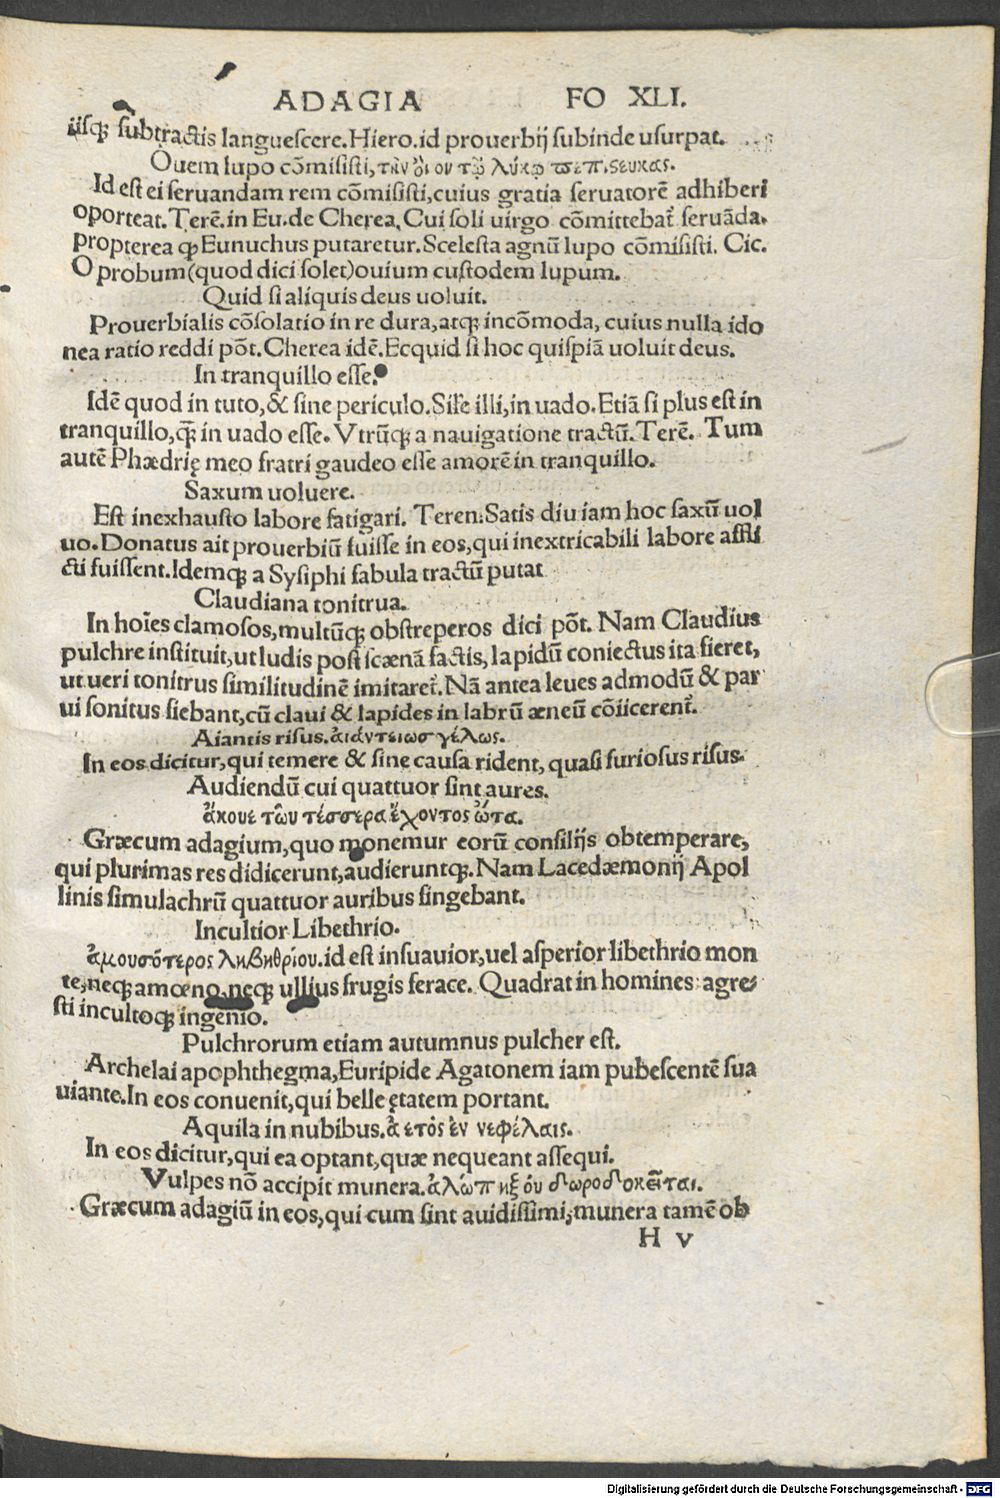 ADAGIA FO XLI.
iisq; subtractis languescere. Hiero. id prouerbij subinde usurpat.
Ouem lupo cōmisisti, τὴν ὄιον τῷ λύκῳ πεπίστευκας.
Id est ei seruandam rem cōmisisti, cuius gratia seruatorē adhiberi
oporteat. Terē. in Eu. de Cherea. Cui soli uirgo cōmittebat̄ seruāda.
propterea ꝙ Eunuchus putaretur. Scelesta agnū lupo cōmisisti. Cic.
O probum (quod dici solet) ouium custodem lupum.
Quid si aliquis deus uoluit.
Prouerbialis cōsolatio in re dura, atq; incōmoda, cuius nulla ido
nea ratio reddi pōt. Cherea idē. Ecquid si hoc quispiā uoluit deus.
In tranquillo esse.
Idē quod in tuto, & sine periculo. Sil'e illi, in uado. Etiā si plus est in
tranquillo, q̄ in uado esse. Vtrūq; a nauigatione tractū. Terē. Tum
autē Phædrię meo fratri gaudeo esse amorē in tranquillo.
Saxum uoluere.
Est inexhausto labore fatigari. Teren. Satis diu iam hoc saxū uol
uo. Donatus ait prouerbiū fuisse in eos, qui inextricabili labore affli
cti fuissent. Idemq; a Sysiphi fabula tractū putat
Claudiana tonitrua.
In hoīes clamosos, multūq; obstreperos dici pōt. Nam Claudius
pulchre instituit, ut ludis post scænā factis, lapidū coniectus ita fieret,
ut ueri tonitrus similitudinē imitaret̄. Nā antea leues admodū & par
ui sonitus fiebant, cū claui & lapides in labrū æneū cōiicerent̄.
Aiantis risus. ἀιάντειωσ γέλως.
In eos dicitur, qui temere & sine causa rident, quasi furiosus risus.
Audiendū cui quattuor sint aures.
ἄκουε τῶυ τέσσερα ἔχοντος ὦτα.
Græcum adagium, quo monemur eorū consilijs obtemperare,
qui plurimas res didicerunt, audieruntq;. Nam Lacedæmonij Apol
linis simulachrū quattuor auribus fingebant.
Incultior Libethrio.
ἀμουσότερος ληβηθρίου. id est insuauior, uel asperior libethrio mon
te, neq; amœno, neq; ullius frugis ferace. Quadrat in homines agre-
sti incultoq; ingenio.
Pulchrorum etiam autumnus pulcher est.
Archelai apophthegma, Euripide Agatonem iam pubescentē sua
uiante. In eos conuenit, qui belle ętatem portant.
Aquila in nubibus. ἀετὸς ἐν νεφέλαις.
In eos dicitur, qui ea optant, quæ nequeant assequi.
Vulpes nō accipit munera. ἀλώπηξ ὀυ δωροδοκεῖται.
Græcum adagiū in eos, qui cum sint auidissimi, munera tamē ob
H v
Digitalisierung gefördert durch die Deutsche Forschungsgemeinschaft - DFG